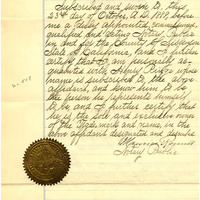 Subscribed and sworn to, this
23rd day of October, A.D. 1889, before
me a duly appointed, commissioned
qualified and acting Notary Public
in and for the County of
State of California, and I further
certify that I am personally ac-
quainted with Henry whose
name is subscribed to the above
affidavit, and know him to be
the person he represents himself
to be and I further certify that
he is the sole and exclusive owner
of the trademark and name, in the
above affidavit designated and described
Notary Public